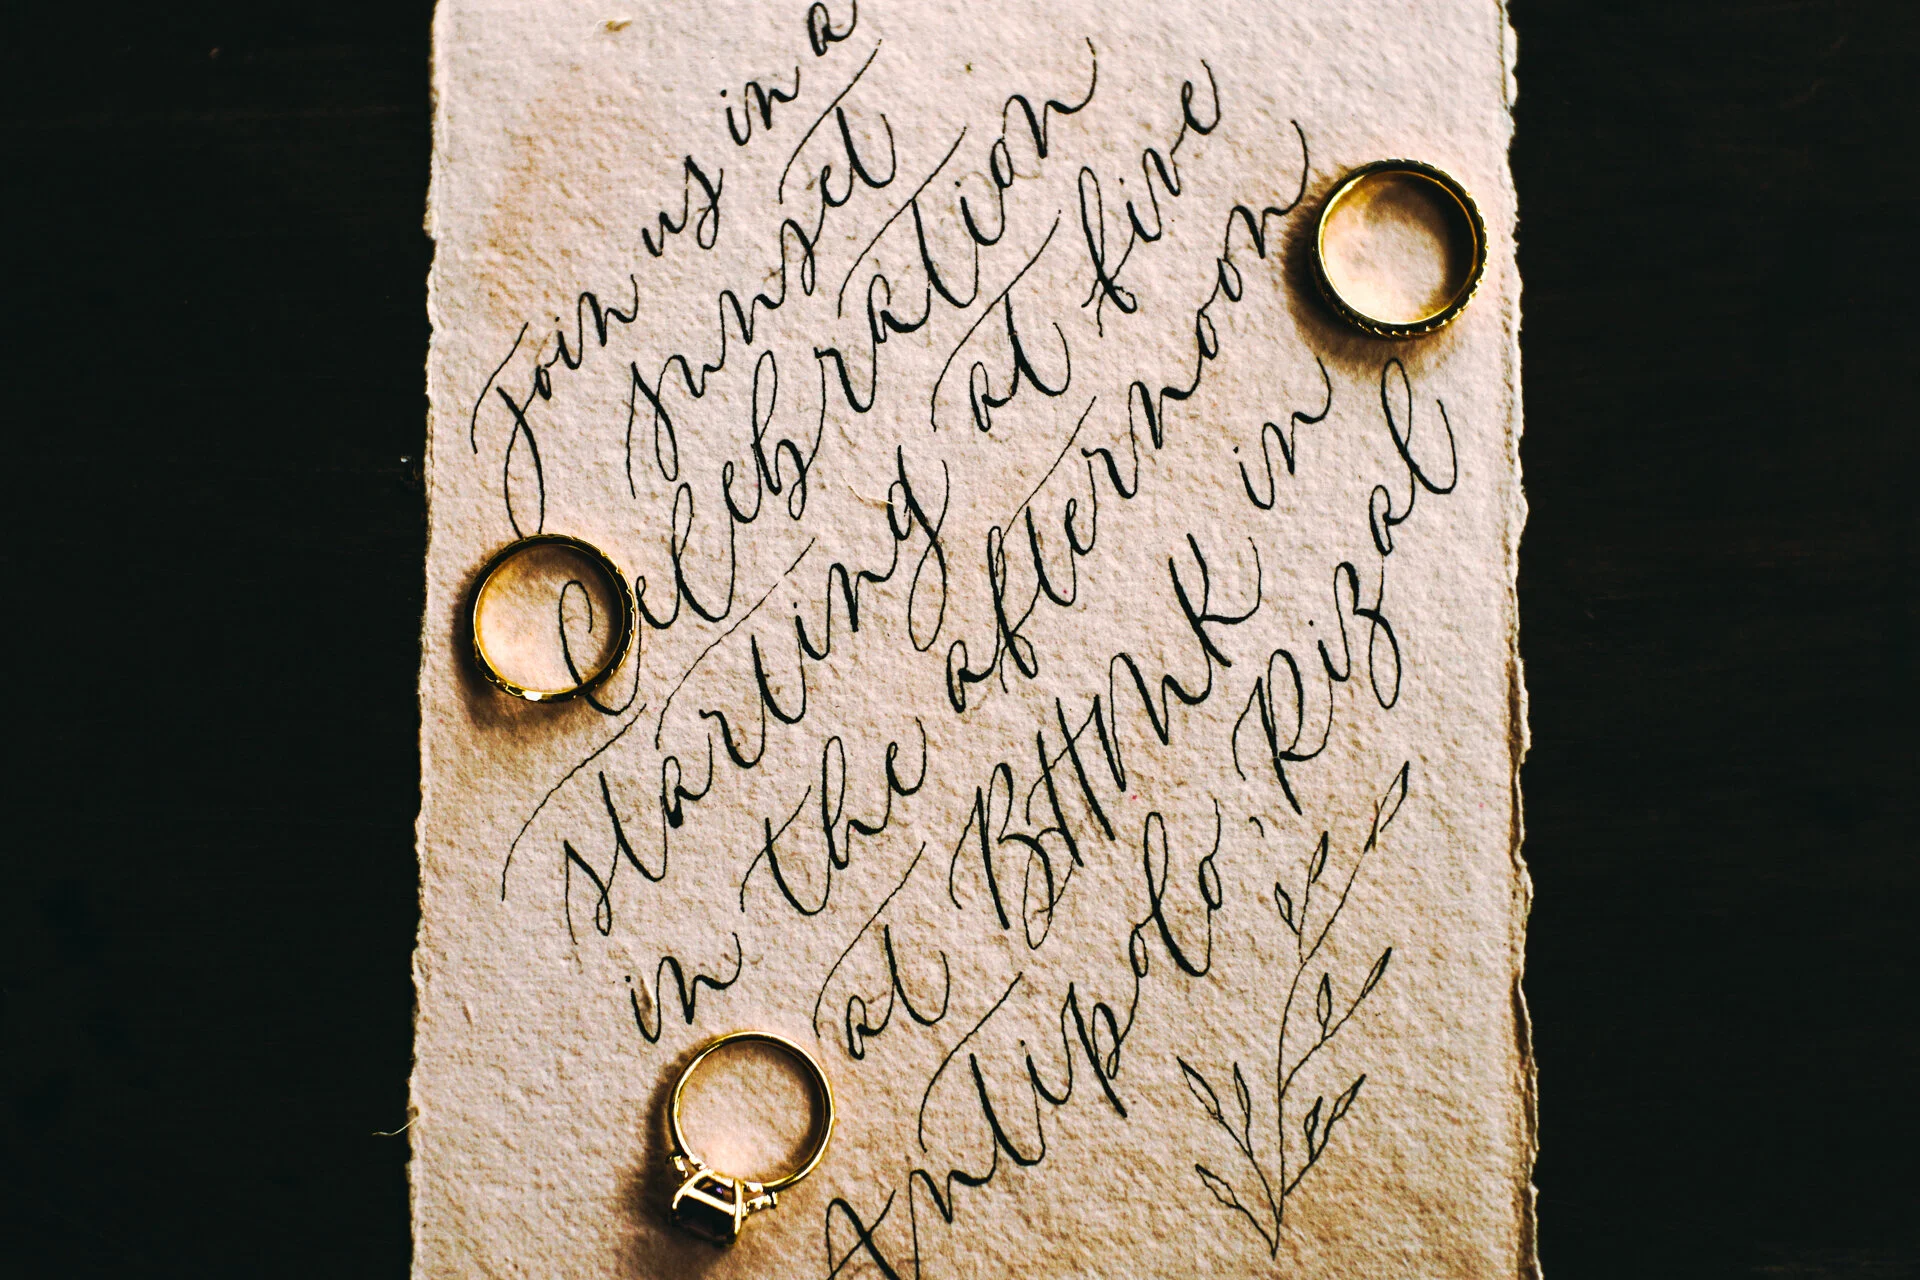 Join us in a
sunset
Celebration
starting at five
in the afternoon
at BHMK in
Antipolo, Rizal